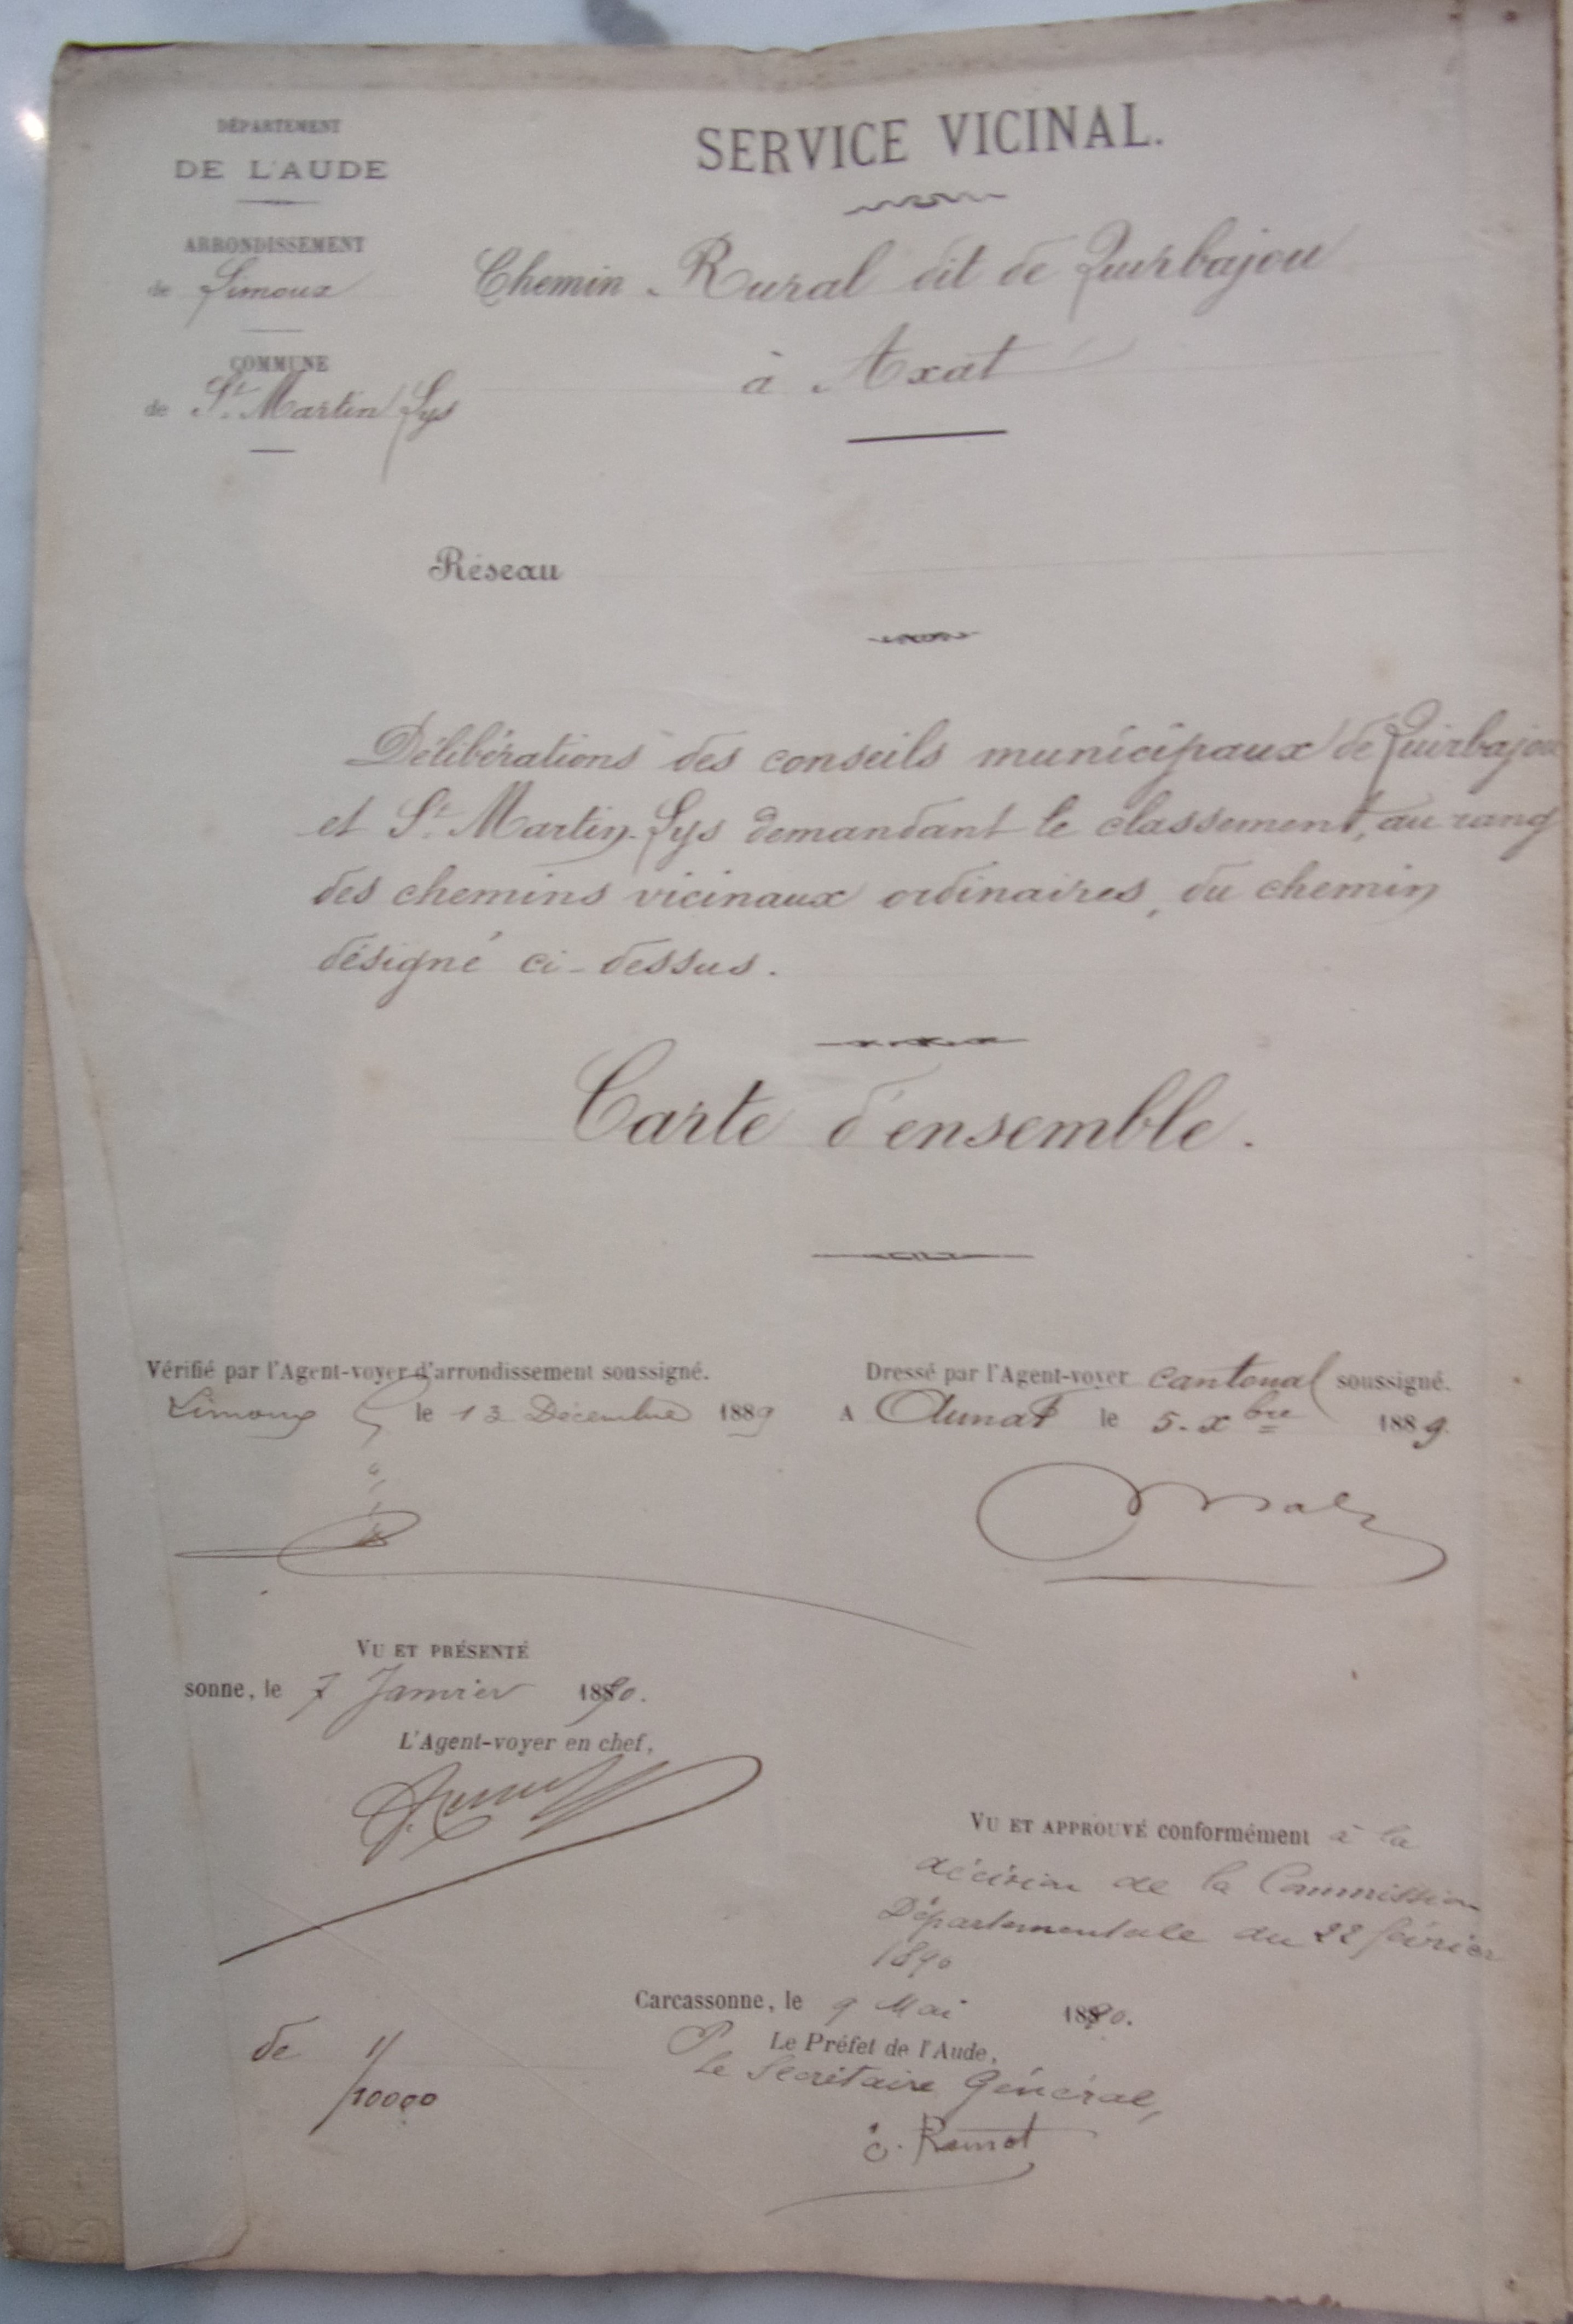 DÉPARTEMENT
DE L'AUDE
ARRONDISSEMENT
de Limoux
COMMUNE
de St. Martin Lys
SERVICE VICINAL.
Chemin Rural dit de Quirbajou
à Axat
Réseau
Délibérations des conseils municipaux de Quirbajou
et St. Martin-Lys demandant le classement, au rang
des chemins vicinaux ordinaires, du chemin
désigné ci-dessus.
Carte d'ensemble.
Vérifié par l'Agent-voyer d'arrondissement soussigné.
Limoux le 13 Décembre 1889
Dressé par l'Agent-voyer cantonal soussigné.
A Aunat le 5. xbre 1889.
VU ET PRÉSENTÉ
sonne, le 7 Janvier 1890.
L'Agent-voyer en chef,
VU ET APPROUVÉ conformément à la
décision de la Commission
Départementale du 22 février
1890
Carcassonne, le 9 Mai 1890.
P Le Préfet de l'Aude,
Le Secrétaire Général,
de 1/10000